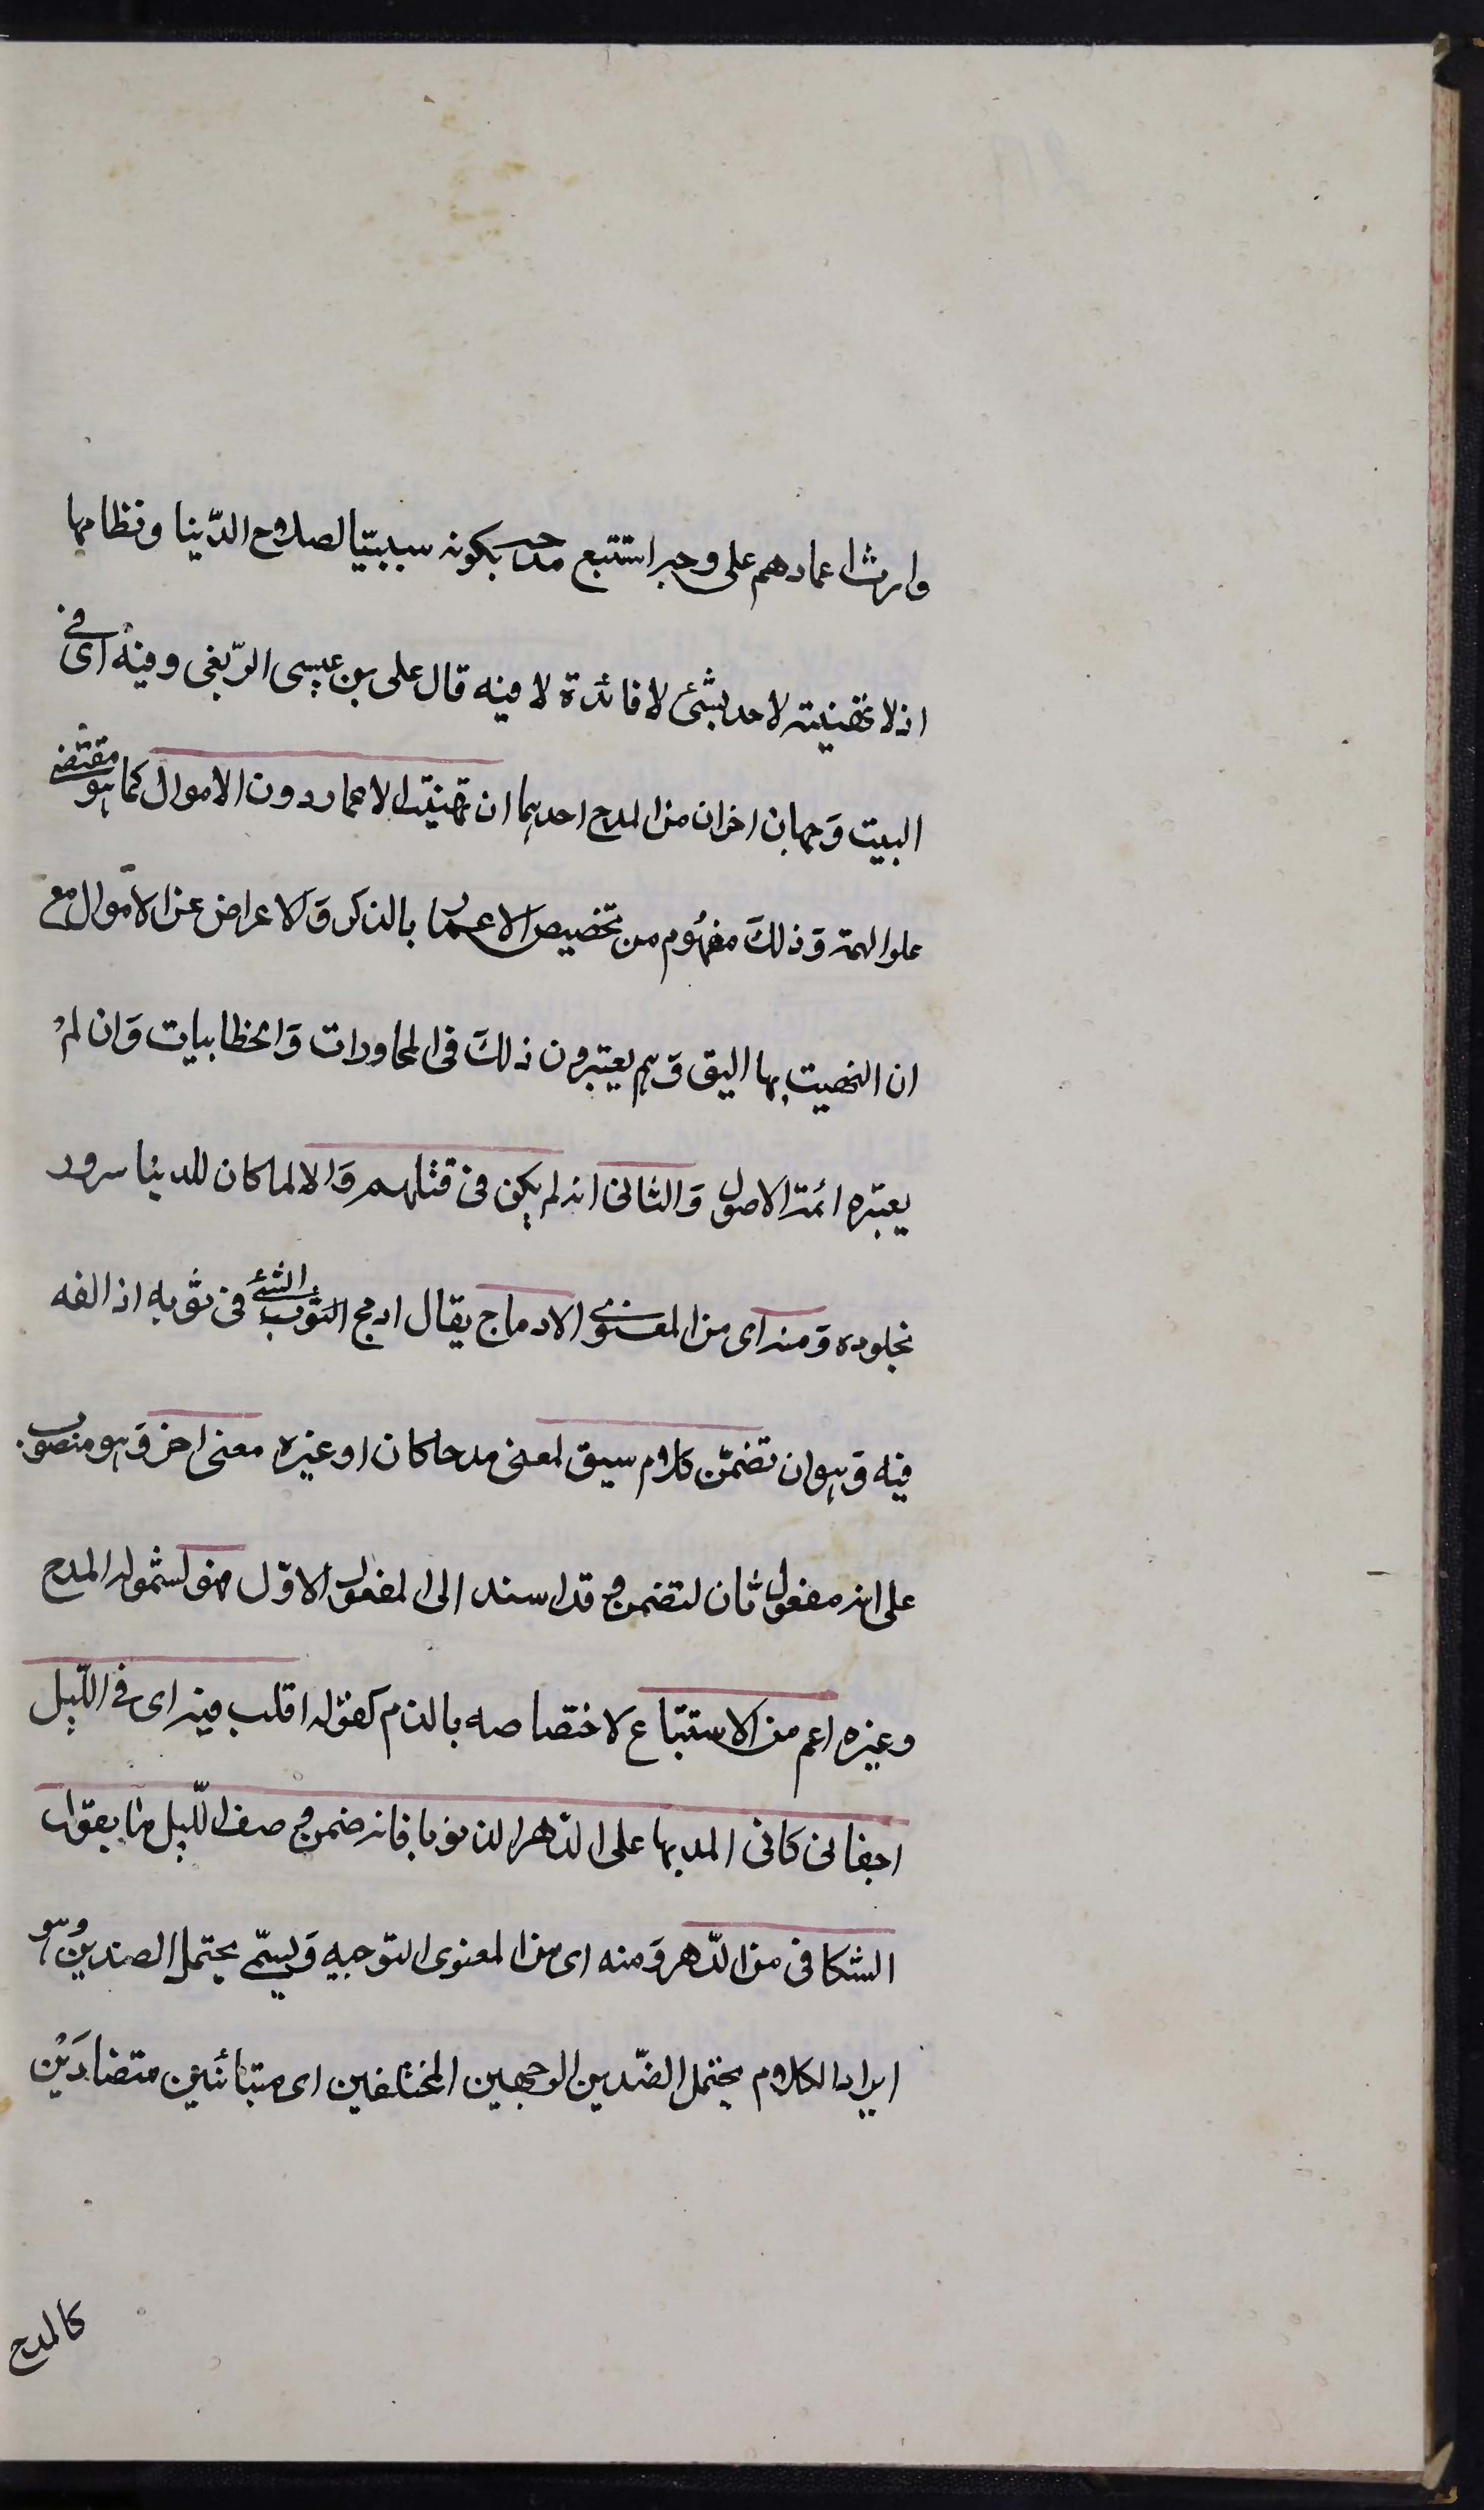 وارث اعمارهم على وجه استتبع مدحه بكونه سببيّا لصلاح الدّينا ونظامها
اذ لا تهنيته لاحد بشئ لا فائدة لا فيه قال على بن عيسى الرّبغى وفيه اى فى
البيت وَجهان اخران من المدح احدهما ان تهنيته الاعمار دون الاموال كما هو مقتضى
علو الهمة وَذلكَ مفهُوم من تخصيص الاعمار بالذكر وَالاعراض عن الاموال مع
ان النهيت بها اليق وَهم يعتبرون ذلكَ فى المحاورات وَالخطابيات وَان لمْ
يعتبره ائمة الاصول وَالثانى انه لم يكن فى قتلهم وَالا لما كان للدينا سرور
نجلوده وَمنه اى من المعنوى الادماج يقال ادمج الثوب الشئ فى ثوبه اذا لفه
فيه وَهو ان تضمّن كلام سيق لمعنى مدحا كان او غيره معنى اخر وَهو منصوب
على انه مفعول ثان لتضمن وَقد اسند الى المفعول الاوّل فهو لشموله المدح
وغيره اعم من الاستتباع لاختصاصه بالذم كقوله اقلب فيه اى فى اللّيل
اجفانى كانى اعد بها على الدّهر الذنوبا فانه ضمن وصف اللّيل بما يقول
الشكافى من الدّهر وَمنه اى من المعنوى التوجيه وَليسمّى يحتمل الضدين وهو
ايراد الكلام يحتمل الضّدين الوجهين المختلفين اى متبائنين متضادَيْن
كالمدح